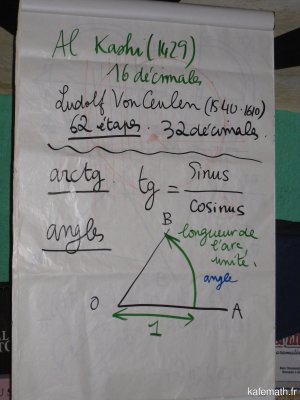 Al Kashi (1429)
16 décimales
Ludolf Von Ceulen (1540-1610)
62 étapes. 32 décimales.
arctg tg = Sinus
Cosinus
angles
B
longueur de
l'arc,
unité,
angle
O
A
1
kafemath.fr